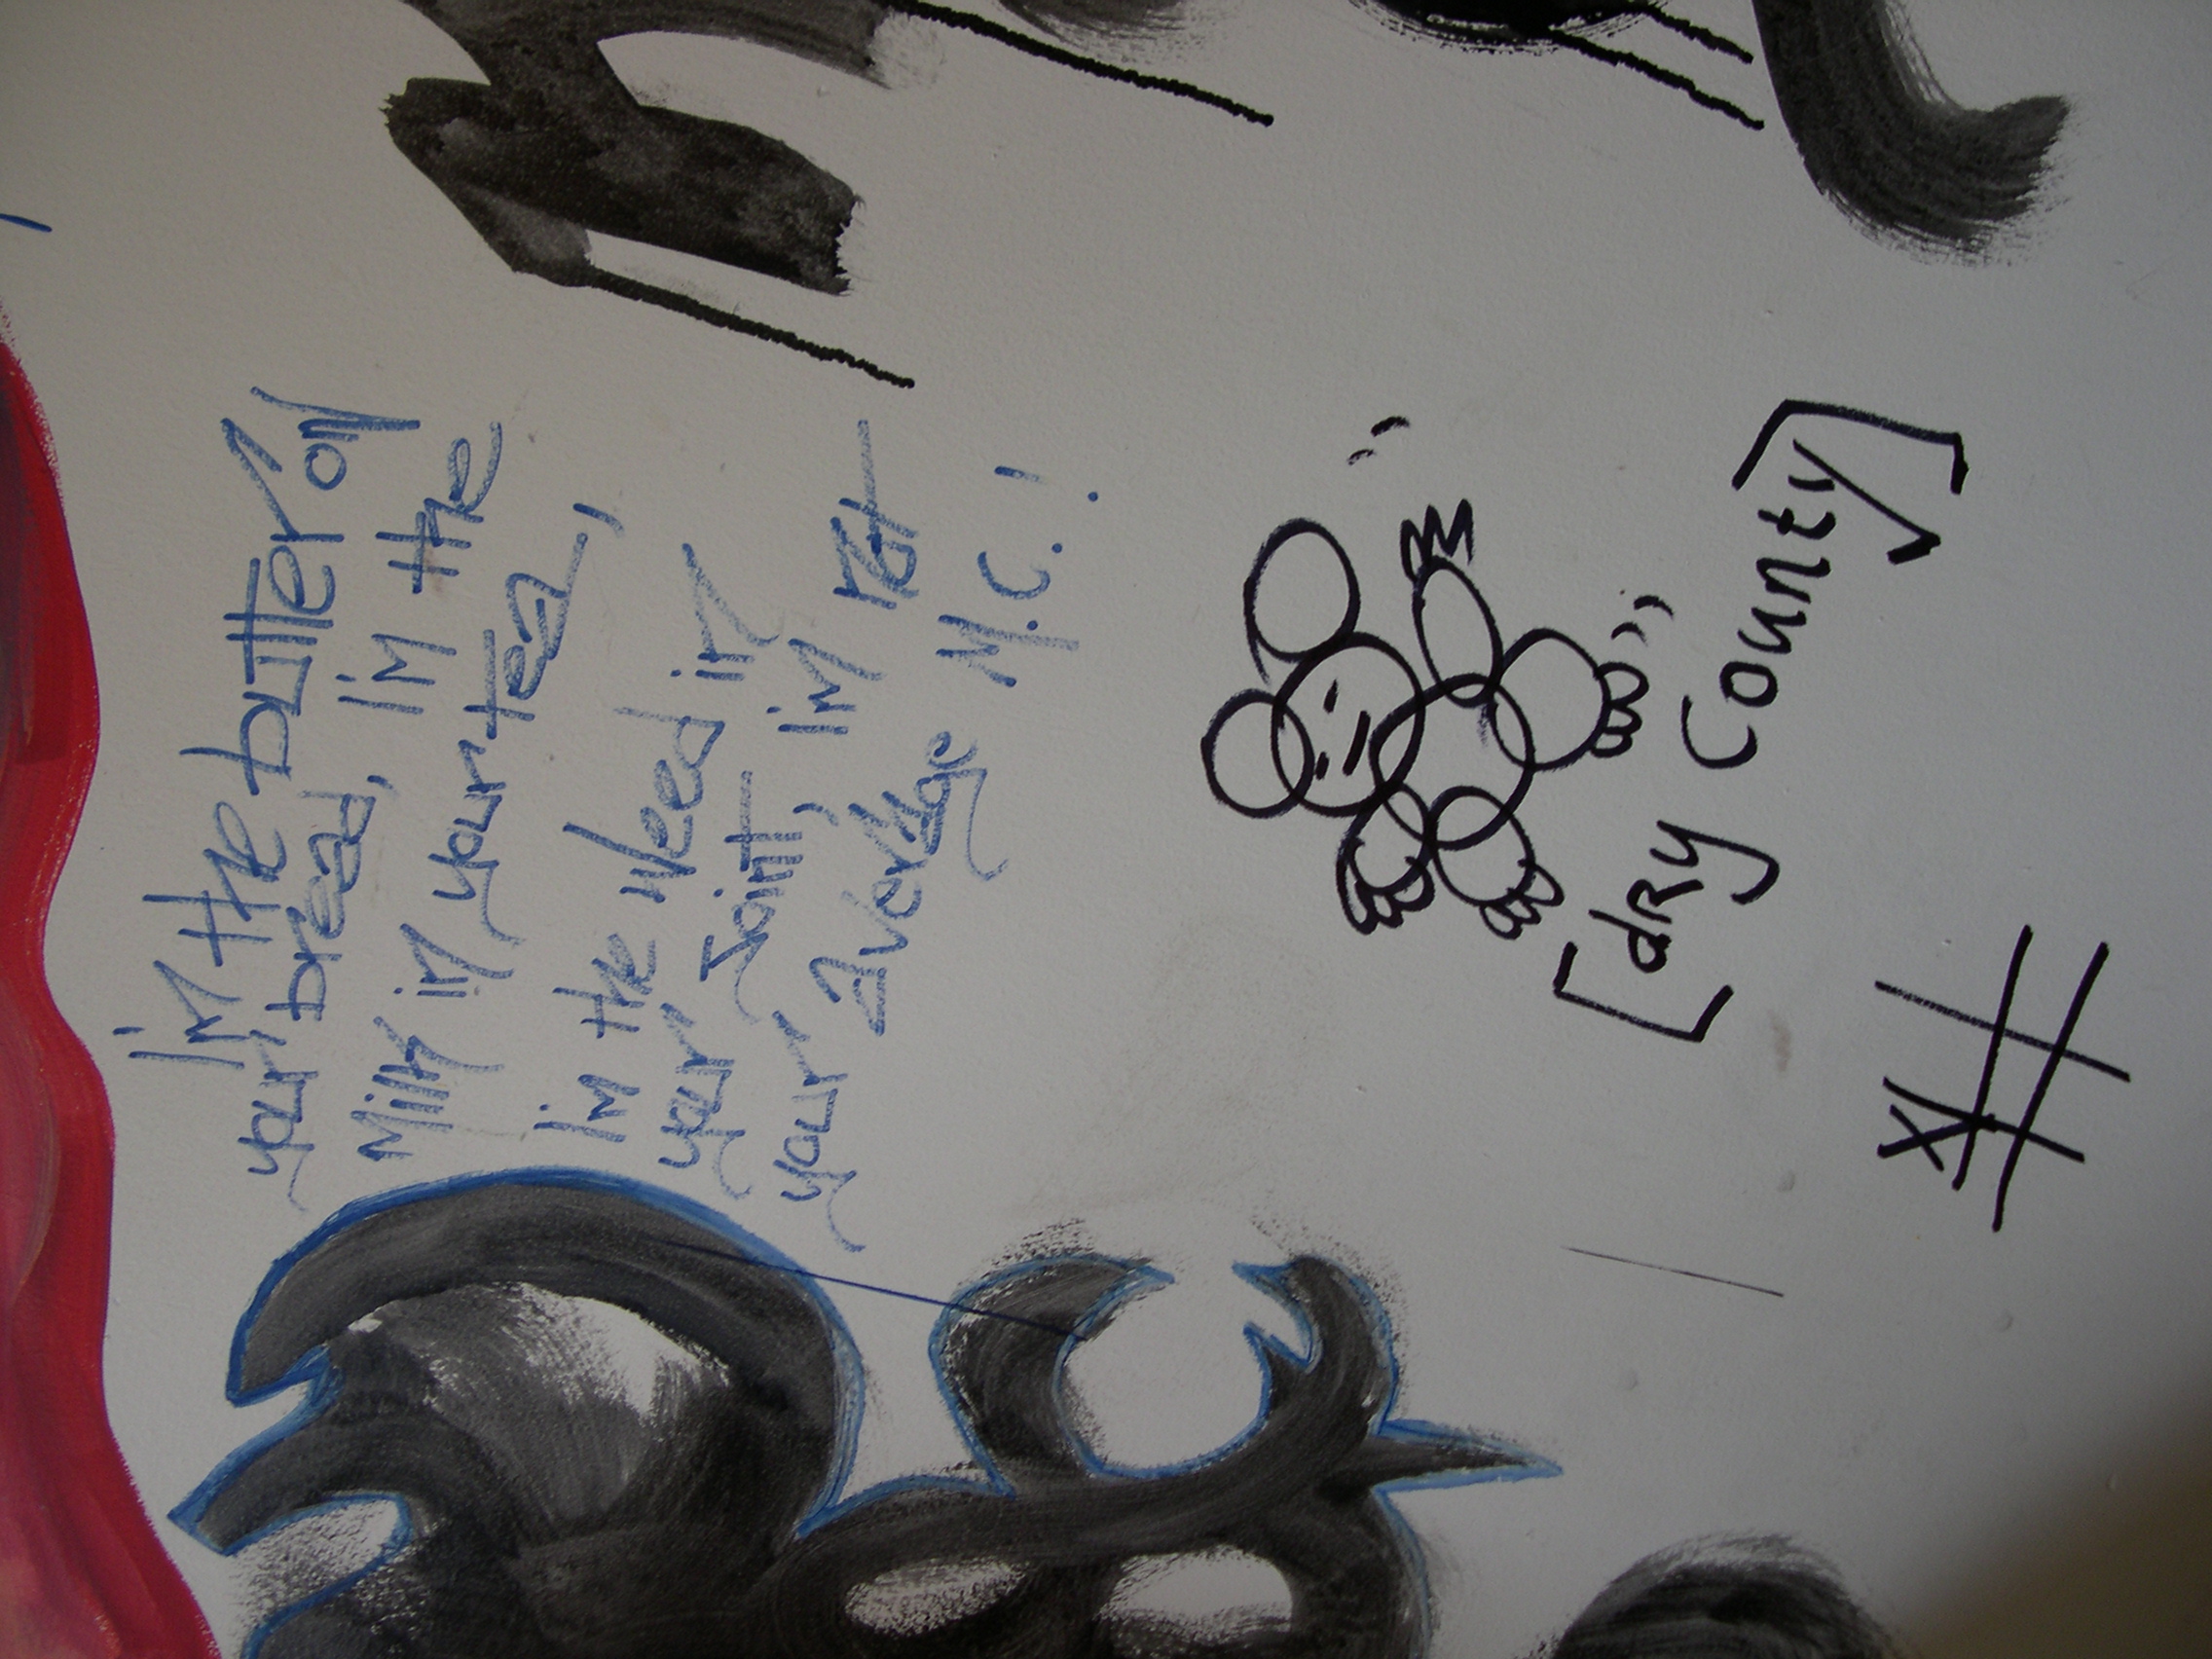 I'm the butter on
your bread, I'm the
Milk in your tea,
I'm the weed in
your Joint, I'm not
your average M.C.!
[dRy County]
X